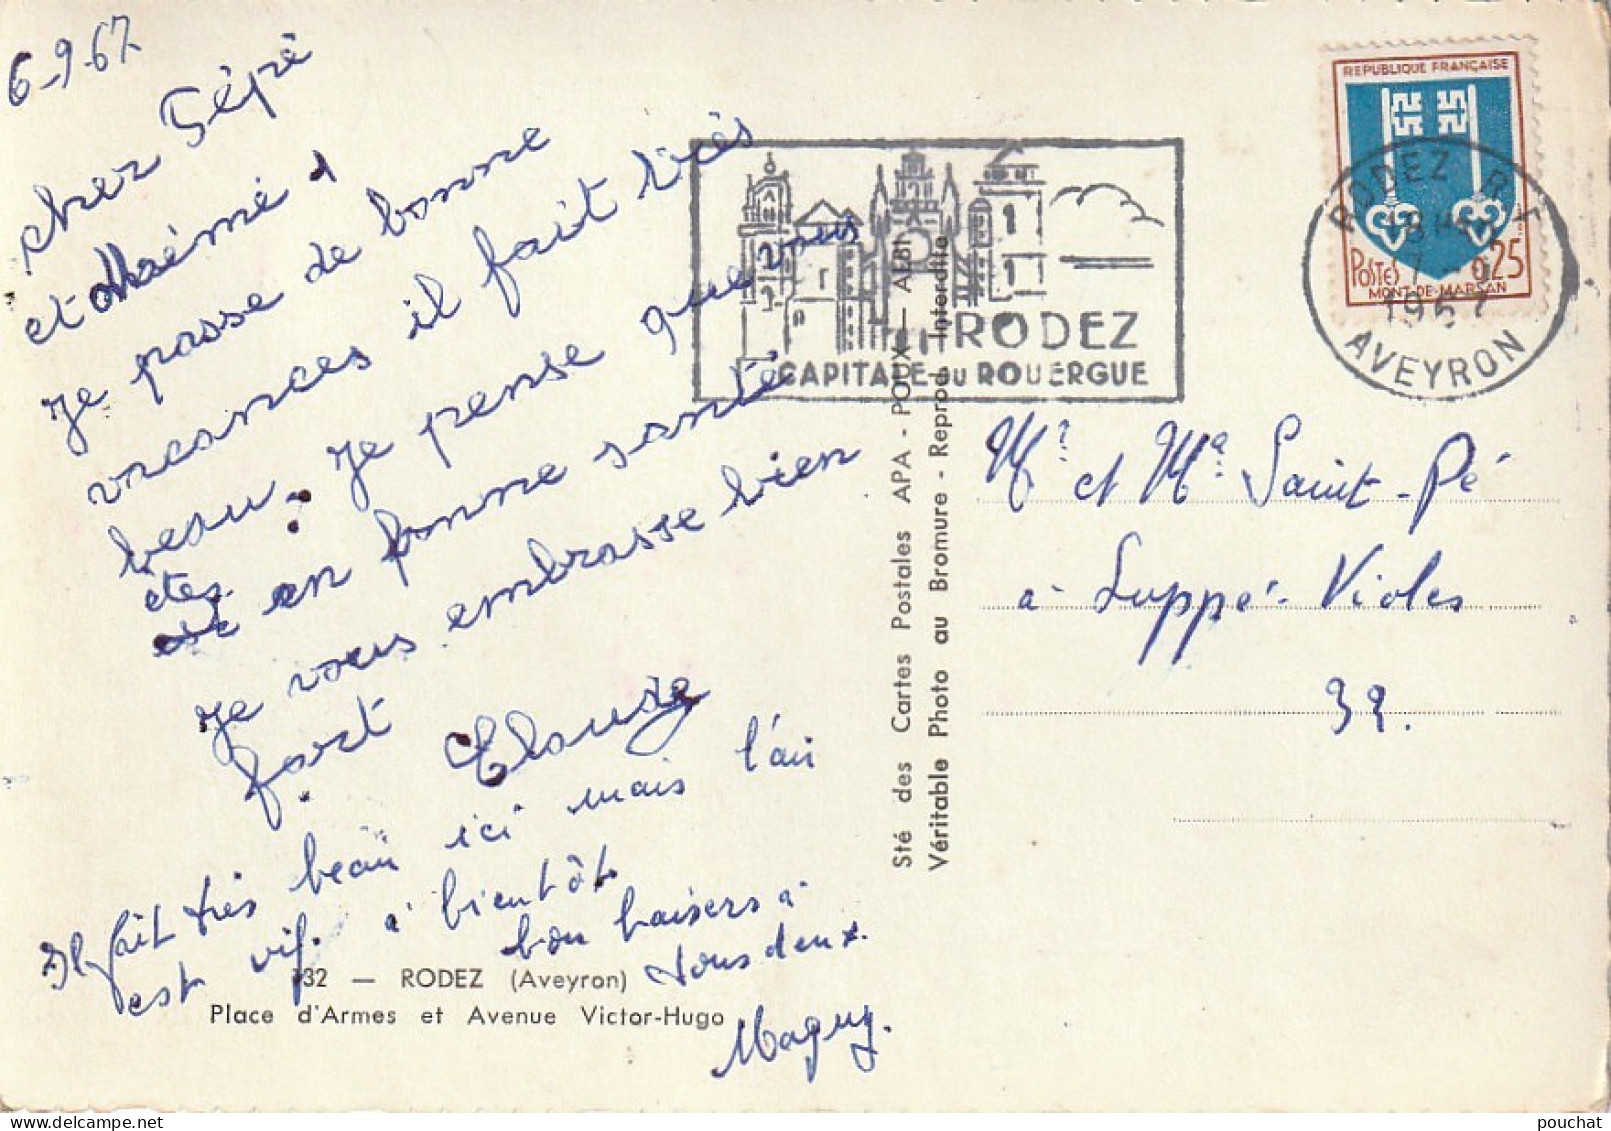 6-9-67
cher Pépé
et Mémé
je passe de bonne
vacances il fait très
beau. je pense que vous
êtes en bonne santé
je vous embrasse bien
fort
Claude
Il fait très beau ici mais l'air
est vif. à bientôt
bon baisers à
tous deux.
Maguy.
132 — RODEZ (Aveyron)
Place d'Armes et Avenue Victor-Hugo
Sté des Cartes Postales APA - POUX — ALBI
Véritable Photo au Bromure - Reprod. Interdite
RODEZ
CAPITALE DU ROUERGUE
REPUBLIQUE FRANÇAISE
POSTES 0,25
MONT-DE-MARSAN
RODEZ R.P.
18H
7-9
1967
AVEYRON
Mr et Me Saint-Pé
à Luppé-Violes
32.
pouchat